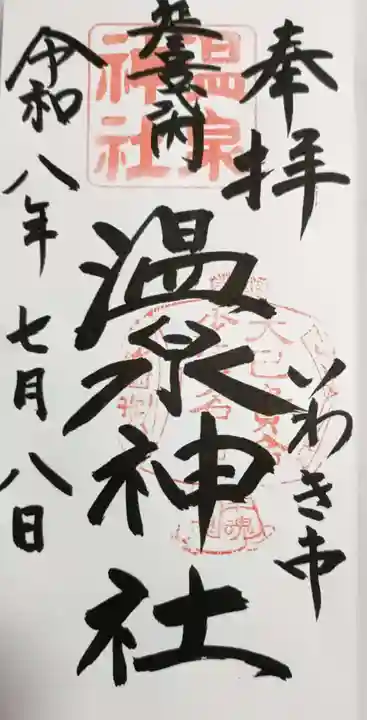 奉拝
いわき市
延喜式内
温泉神社
温泉
神社
令和八年七月八日